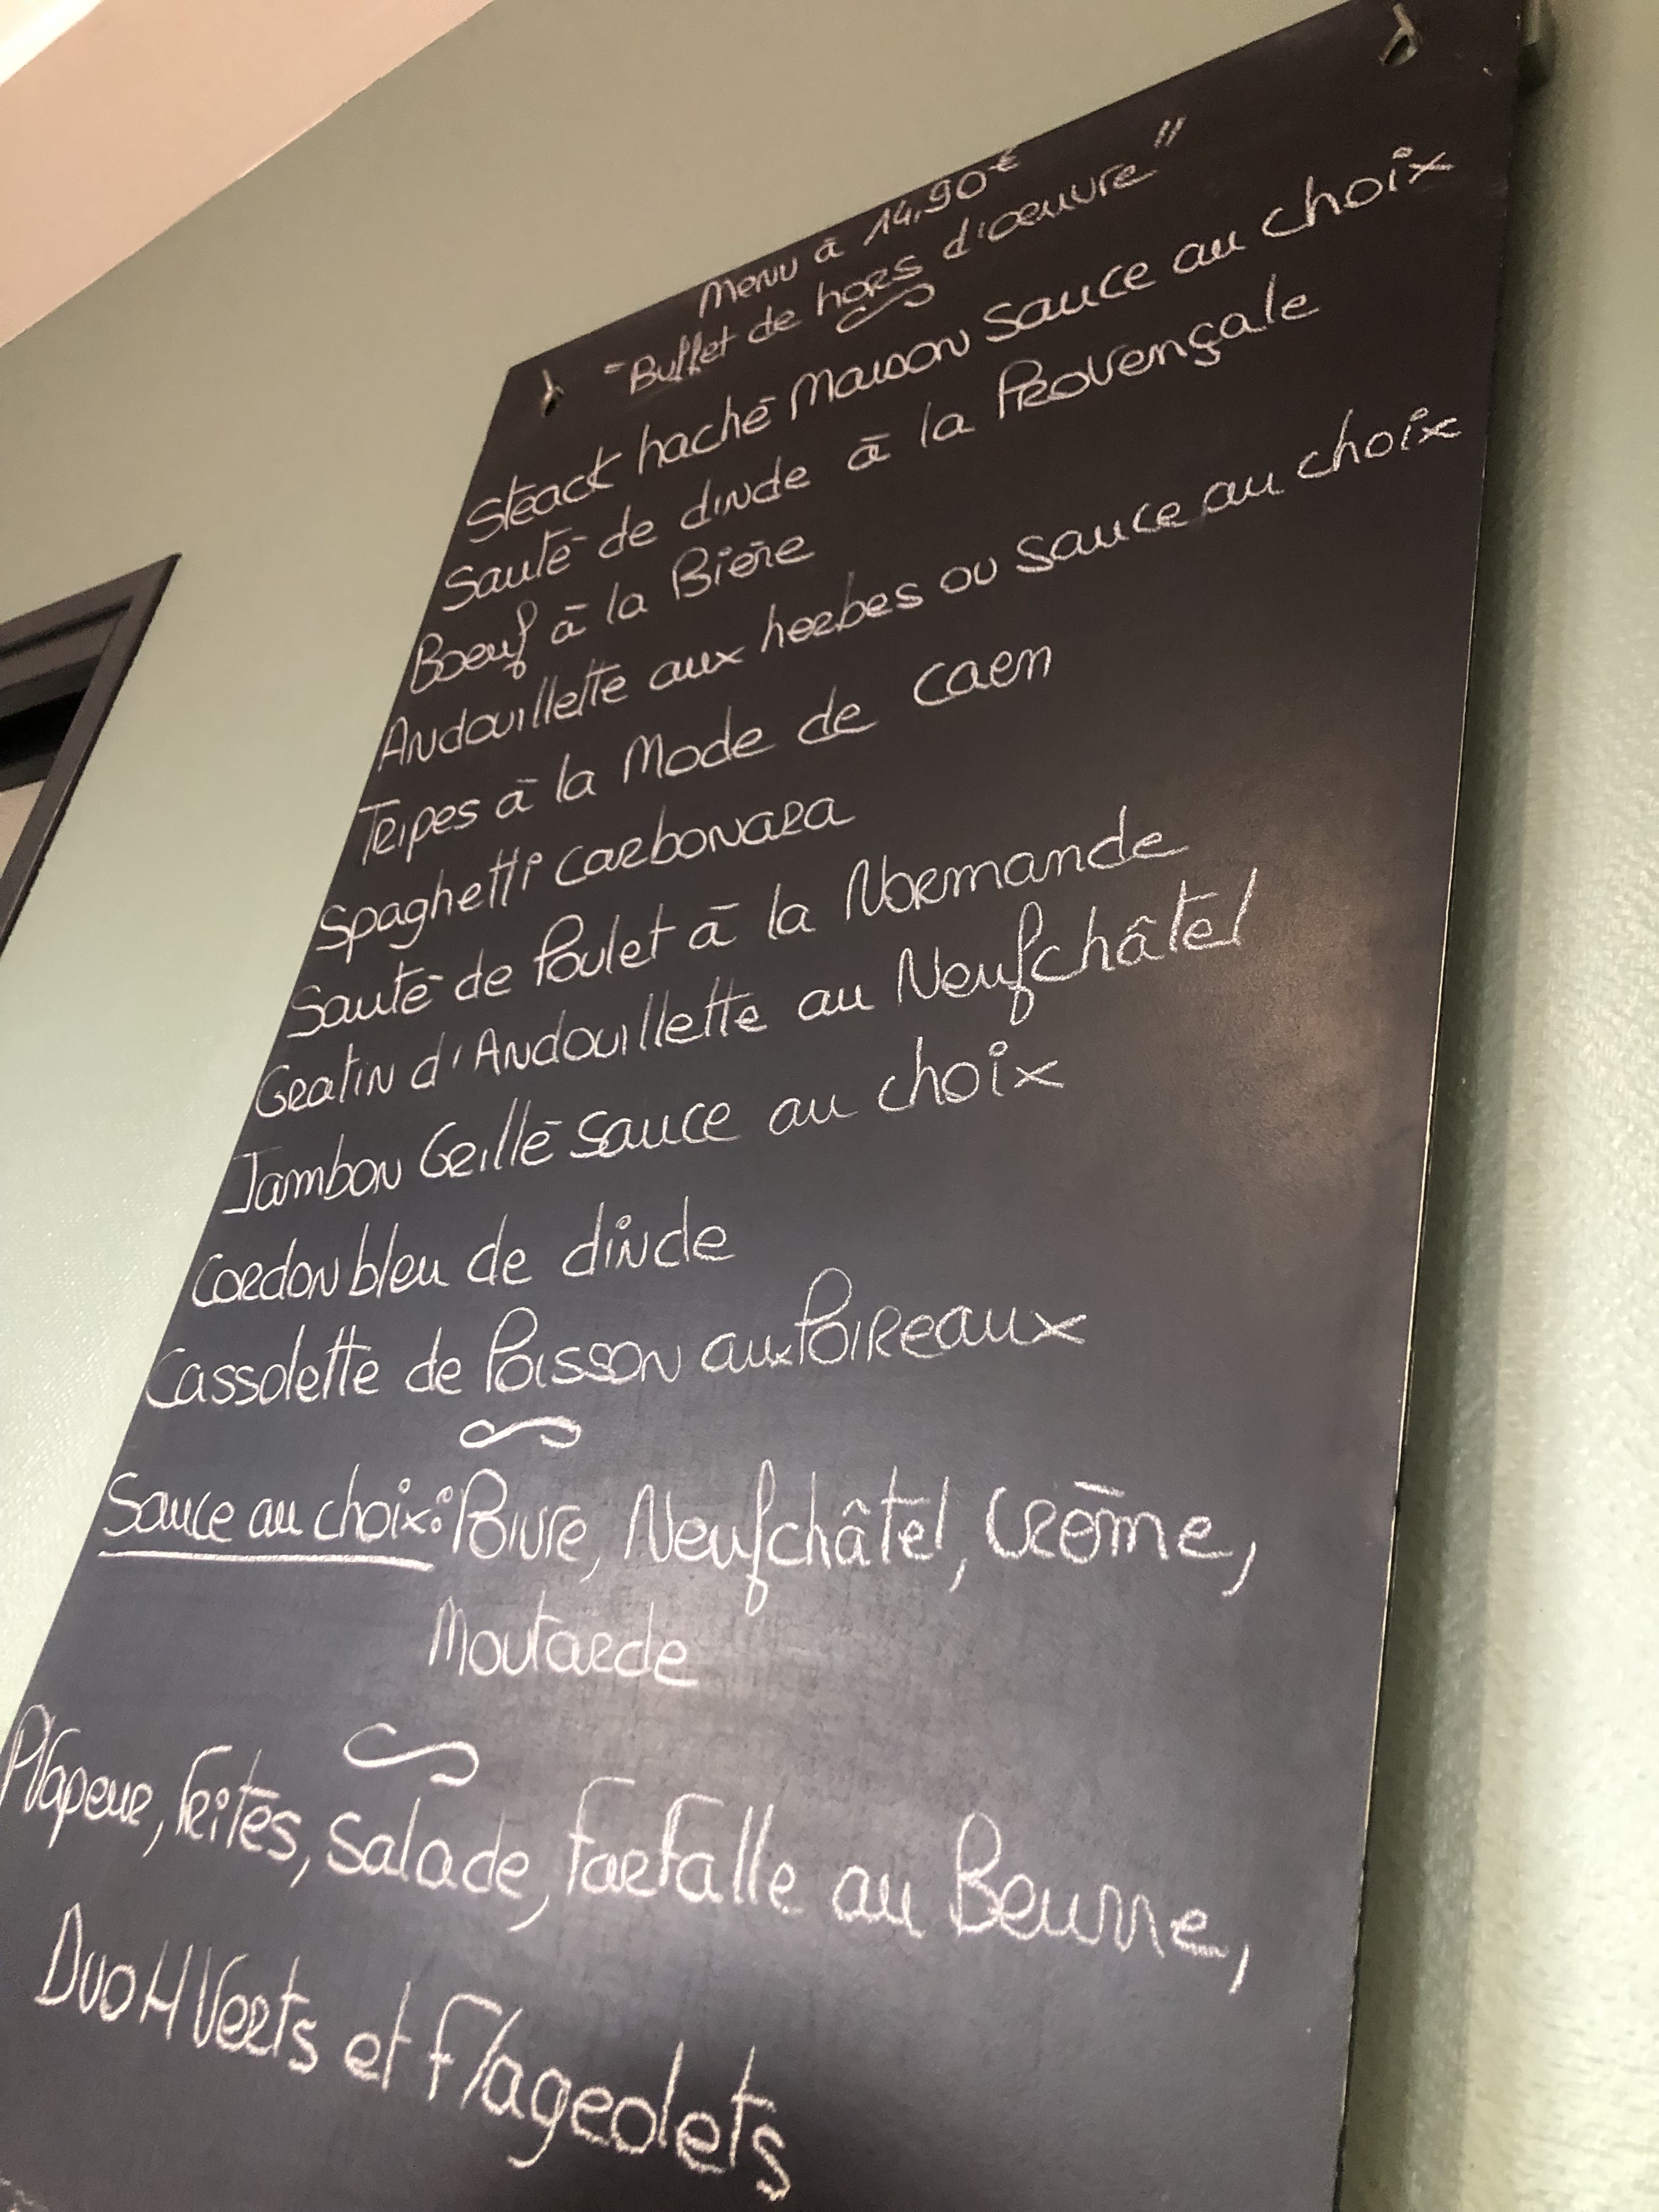 Menu à 14,90€
"Buffet de hors d'œuvre"
Steack haché Maison sauce au choix
Sauté de dinde à la Provençale
Boeuf à la Bière
Andouillette aux herbes ou sauce au choix
Tripes à la Mode de caen
Spaghetti carbonara
Sauté de Poulet à la Normande
Gratin d'Andouillette au Neufchâtel
Jambon Grillé sauce au choix
Cordon bleu de dinde
Cassolette de Poisson aux Poireaux
Sauce au choix: Poivre, Neufchâtel, Crème,
Moutarde
P Vapeur, Frites, Salade, Farfalle au Beurre,
Duo H Verts et Flageolets